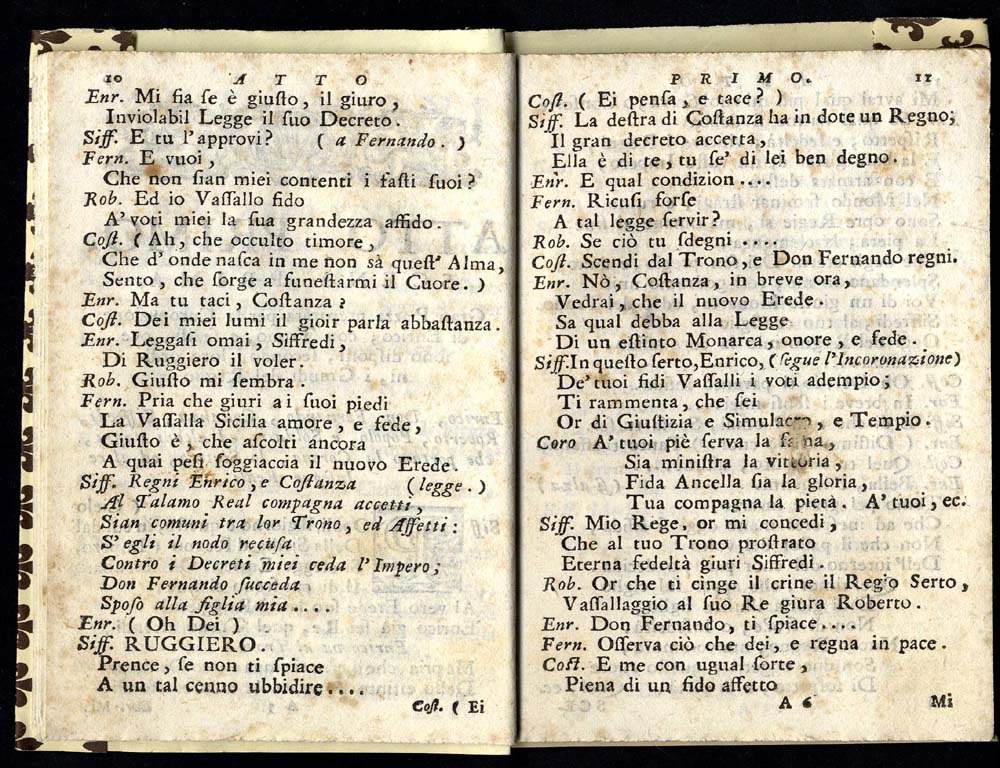 10 A T T O
Enr. Mi fia ſe è giuſto, il giuro,
Inviolabil Legge il ſuo Decreto.
Siff. E tu l'approvi? ( a Fernando. )
Fern. E vuoi,
Che non ſian miei contenti i faſti ſuoi?
Rob. Ed io Vaſſallo fido
A' voti miei la ſua grandezza affido.
Coſt. ( Ah, che occulto timore,
Che d'onde naſca in me non sà queſt' Alma,
Sento, che ſorge a funeſtarmi il Cuore. )
Enr. Ma tu taci, Coſtanza?
Coſt. Dei miei lumi il gioir parla abbaſtanza.
Enr. Leggaſi omai, Siffredi,
Di Ruggiero il voler.
Rob. Giuſto mi ſembra.
Fern. Pria che giuri ai ſuoi piedi
La Vaſſalla Sicilia amore, e fede,
Giuſto è, che aſcolti ancora
A quai peſi ſoggiaccia il nuovo Erede.
Siff. Regni Enrico, e Coſtanza (legge.)
Al Talamo Real compagna accetti,
Sian comuni tra lor Trono, ed Affetti:
S' egli il nodo recuſa
Contro i Decreti miei ceda l'Impero;
Don Fernando ſucceda
Spoſo alla figlia mia....
Enr. ( Oh Dei )
Siff. RUGGIERO.
Prence, ſe non ti ſpiace
A un tal cenno ubbidire....
Coſt. ( Ei
P R I M O. 11
Coſt. ( Ei penſa, e tace? )
Siff. La deſtra di Coſtanza ha in dote un Regno;
Il gran decreto accetta,
Ella è di te, tu ſe' di lei ben degno.
Enr. E qual condizion....
Fern. Ricuſi, forſe
A tal legge ſervir?
Rob. Se ciò tu ſdegni....
Coſt. Scendi dal Trono, e Don Fernando regni.
Enr. Nò, Coſtanza, in breve ora,
Vedrai, che il nuovo Erede.
Sa qual debba alla Legge
Di un eſtinto Monarca, onore, e fede.
Siff. In queſto ſerto, Enrico, (ſegue l'Incoronazione)
De' tuoi fidi Vaſſalli i voti adempio;
Ti rammenta, che ſei
Or di Giuſtizia e Simulacro, e Tempio.
Coro A' tuoi piè ſerva la fama,
Sia miniſtra la vittoria,
Fida Ancella ſia la gloria,
Tua compagna la pietà. A' tuoi, ec.
Siff. Mio Rege, or mi concedi,
Che al tuo Trono proſtrato
Eterna fedeltà giuri Siffredi.
Rob. Or che ti cinge il crine il Regio Serto,
Vaſſallaggio al ſuo Re giura Roberto.
Enr. Don Fernando, ti ſpiace....
Fern. Oſſerva ciò che dei, e regna in pace.
Coſt. E me con ugual ſorte,
Piena di un fido affetto
A 6 Mi